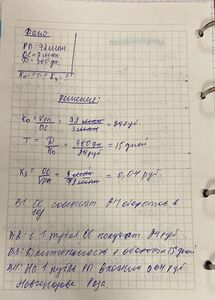 Дано
РП - 72 млн
ОС - 3 млн
Д - 360 дн.
Ко - ? Т - ? Кз - ?
Решение:
Ко = Vрп / ОС = 72 млн / 3 млн = 24 руб.
Т = Д / Ко = 360 дн / 24 руб = 15 дней
Кз = ОС / Vрп = 3 млн / 72 млн = 0,04 руб.
В1: ОС совершат 24 оборотов в год
В2: с 1 рубля ОС получат 24 руб.
В3: Длительность 1 оборота 15 дней
В4: На 1 рубль РП вложили 0,04 руб.
Роза.